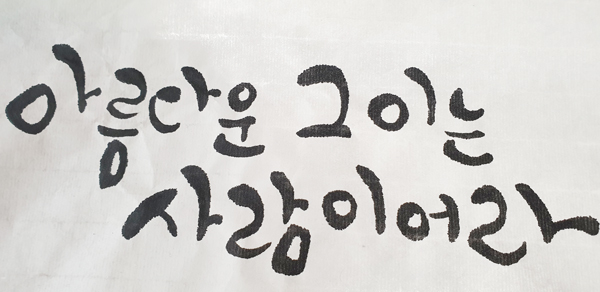 아름다운 그이는
사람이어라